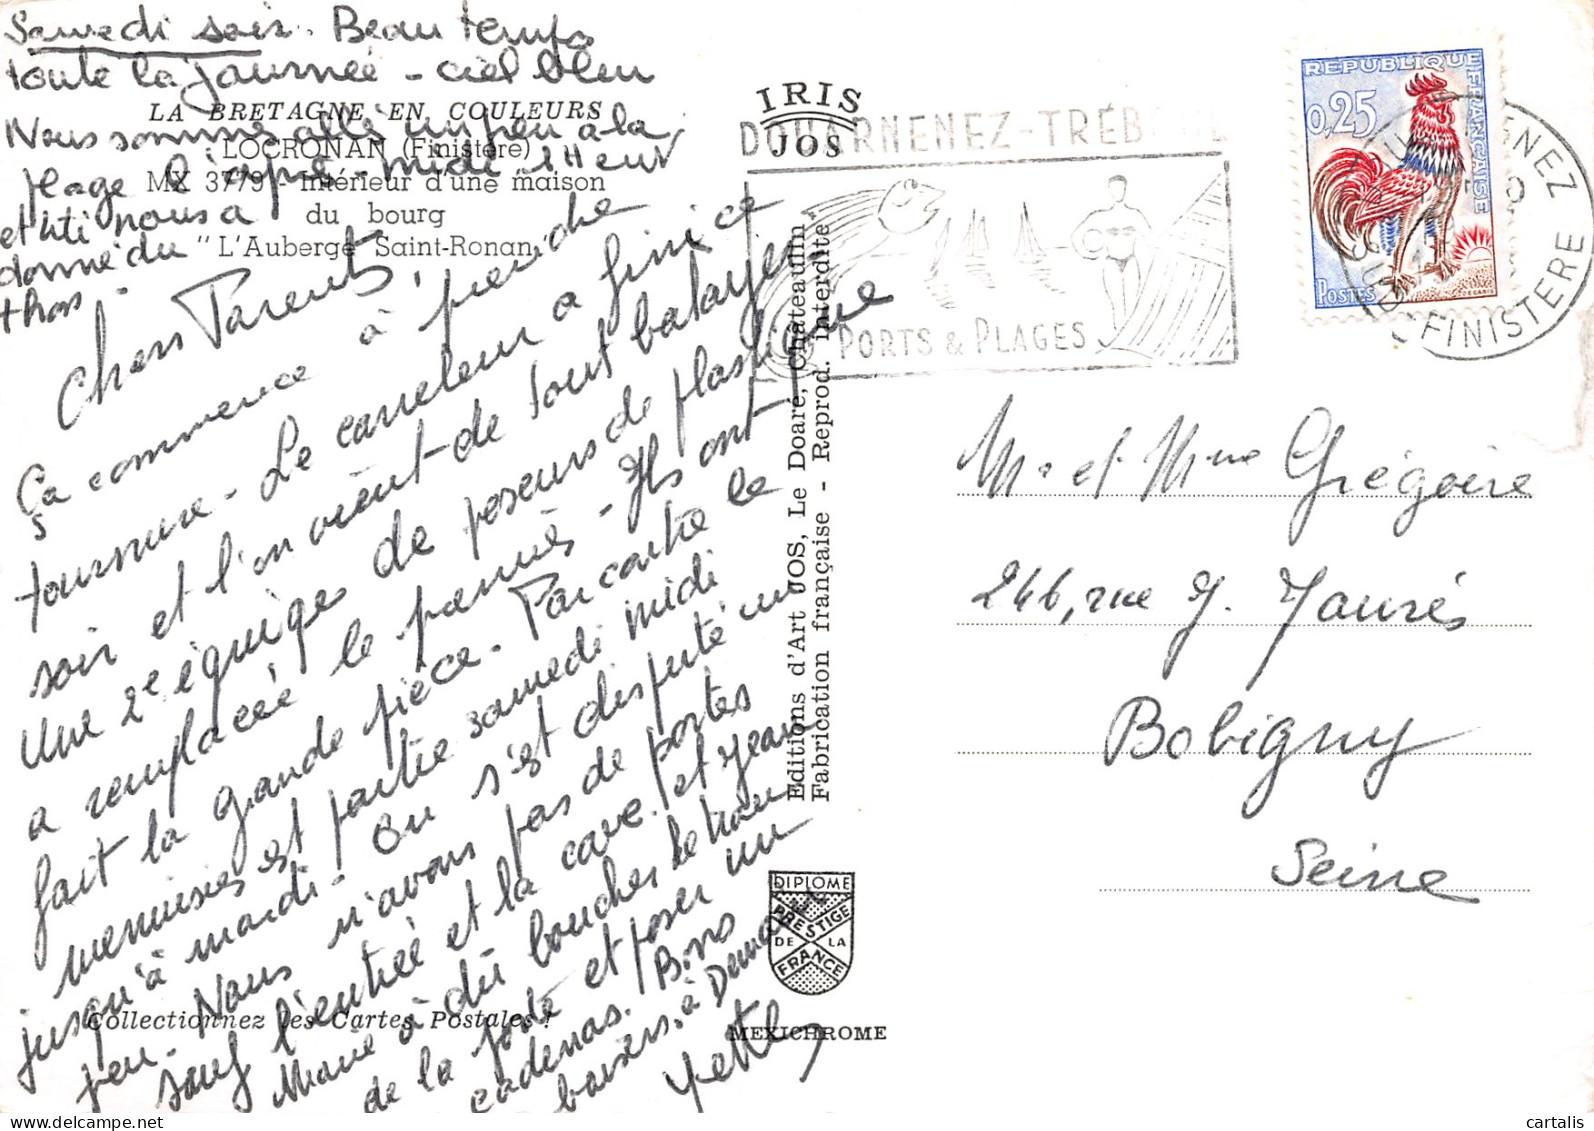 Samedi soir. Beau temps
toute la journée - ciel bleu
Nous sommes allé un peu à la
plage l'après-midi - 1 Heur
et titi nous a
donné du
thon -
LA BRETAGNE EN COULEURS
LOCRONAN (Finistère)
MX 3779 - Intérieur d'une maison
du bourg
"L'Auberge Saint-Ronan"
Chers Parents,
Ça commence à prendre
tournure - Le carreleur a fini ce
soir et l'on vient de tout balayer
Une 2e équipe de poseurs de plastique
a remplacée le premiès - Ils ont
fait la grande pièce. Par contre le
menuisier est partie samedi midi
jusqu'à mardi - On s'est disputé un
peu - Nous n'avons pas de portes
sauf l'entrée et la cave. et Jean
Marie à dû boucher le trou
de la porte et poser un
cadenas. Bons
baisers, à Demain
Yette
Collectionnez les Cartes Postales !
IRIS
JOS
Editions d'Art JOS, Le Doaré, Châteaulin
Fabrication française - Reprod. interdite
DIPLOME
PRESTIGE
DE LA
FRANCE
MEXICHROME
DOUARNENEZ-TRÉB
PORTS & PLAGES
REPUBLIQUE FRANCAISE
0,25
POSTES
DECARIS
FINISTERE
Mr et Mme Grégoire
246, rue J. Jaurés
Bobigny
Seine
cartalis